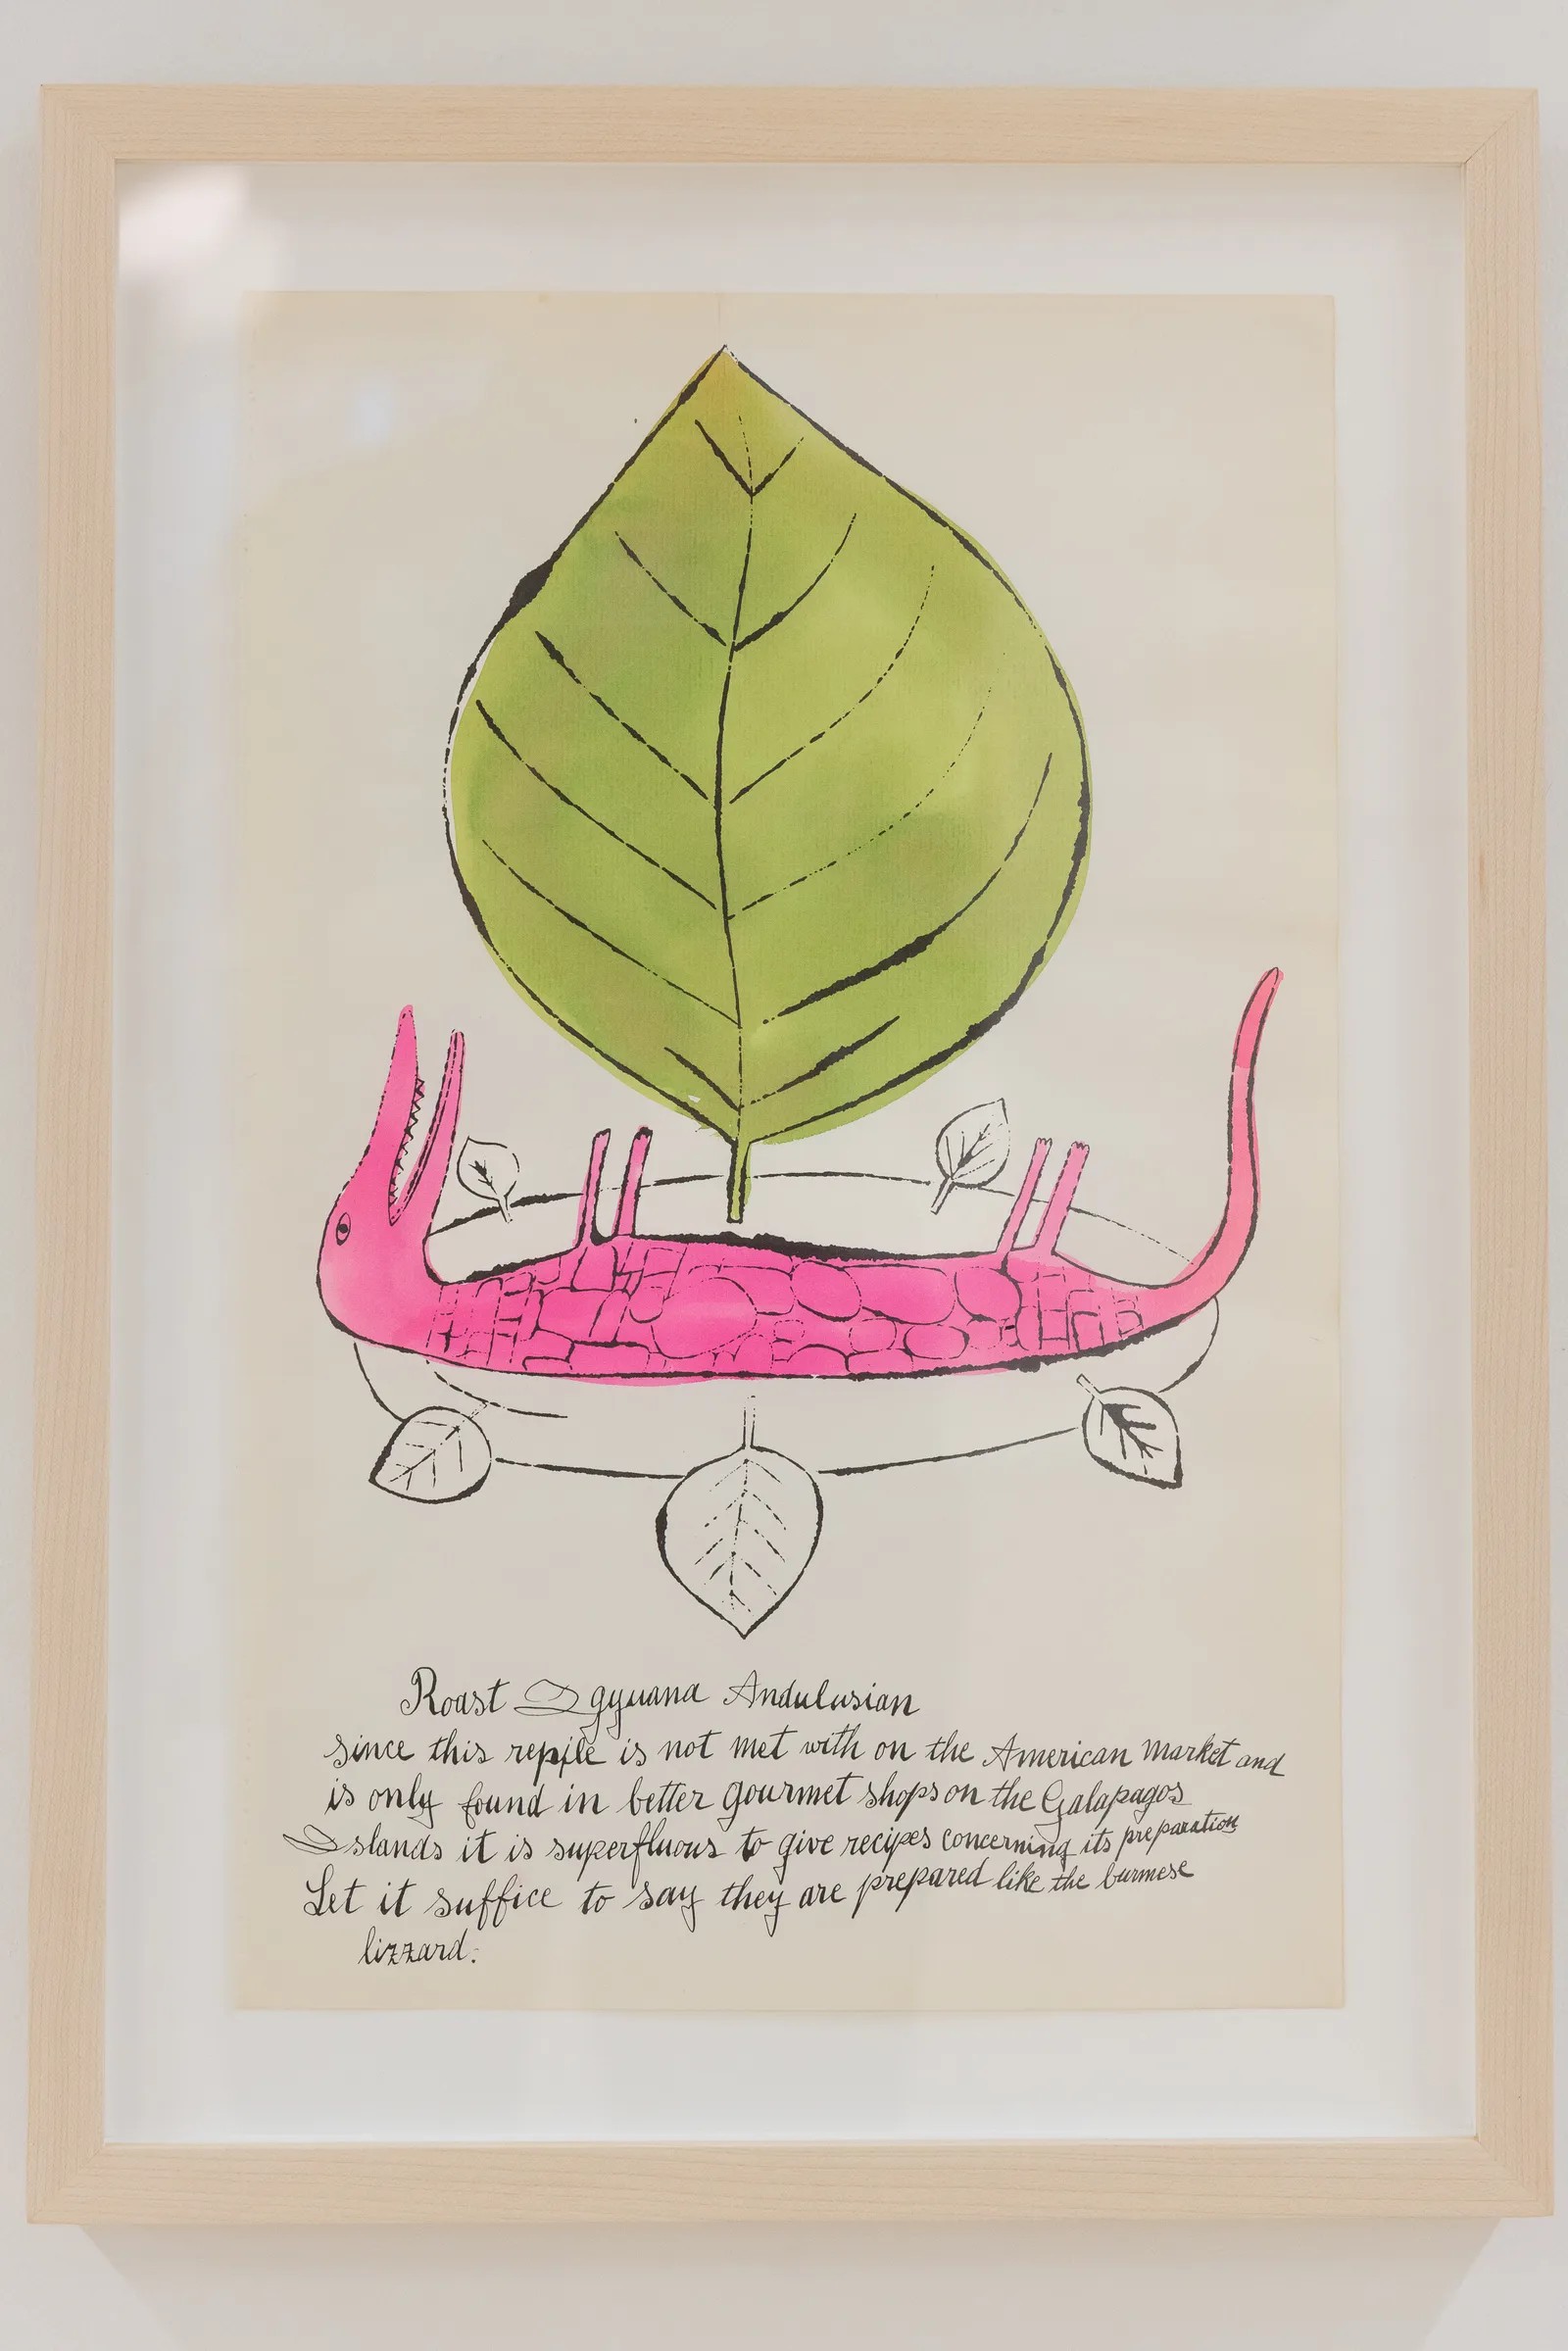 Roast Igyuana Andulusian
since this repile is not met with on the American market and
is only found in better gourmet shops on the Galapagos
Islands it is superfluous to give recipes concerning its preparation
Let it suffice to say they are prepared like the burmese
lizzard.